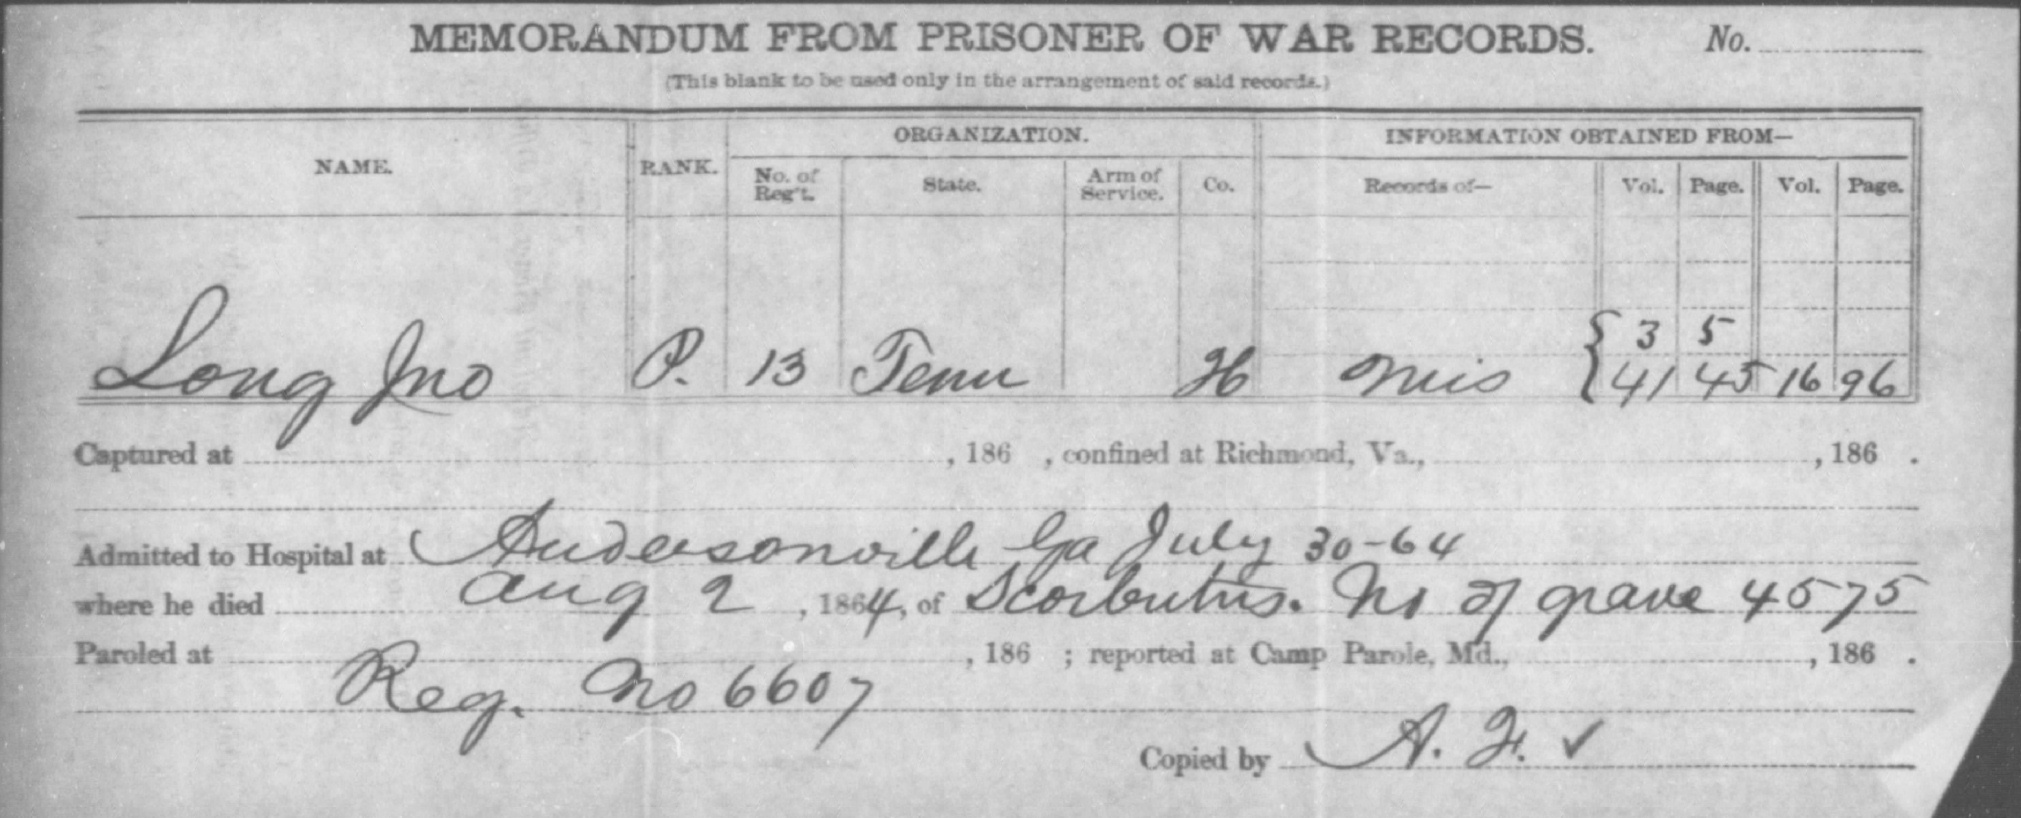 MEMORANDUM FROM PRISONER OF WAR RECORDS. No.
(This blank to be used only in the arrangement of said records.)
NAME. RANK. ORGANIZATION. INFORMATION OBTAINED FROM—
No. of Reg't. State. Arm of Service. Co. Records of— Vol. Page. Vol. Page.
3 5
Long Jno P. 13 Tenn H Mis 41 45 16 96
Captured at , 186 , confined at Richmond, Va., , 186 .
Admitted to Hospital at Andersonville Ga July 30-64
where he died Aug 2 , 1864, of Scorbutus. No of grave 4575
Paroled at , 186 ; reported at Camp Parole, Md., , 186 .
Reg. No 6607
Copied by A. F. ✓